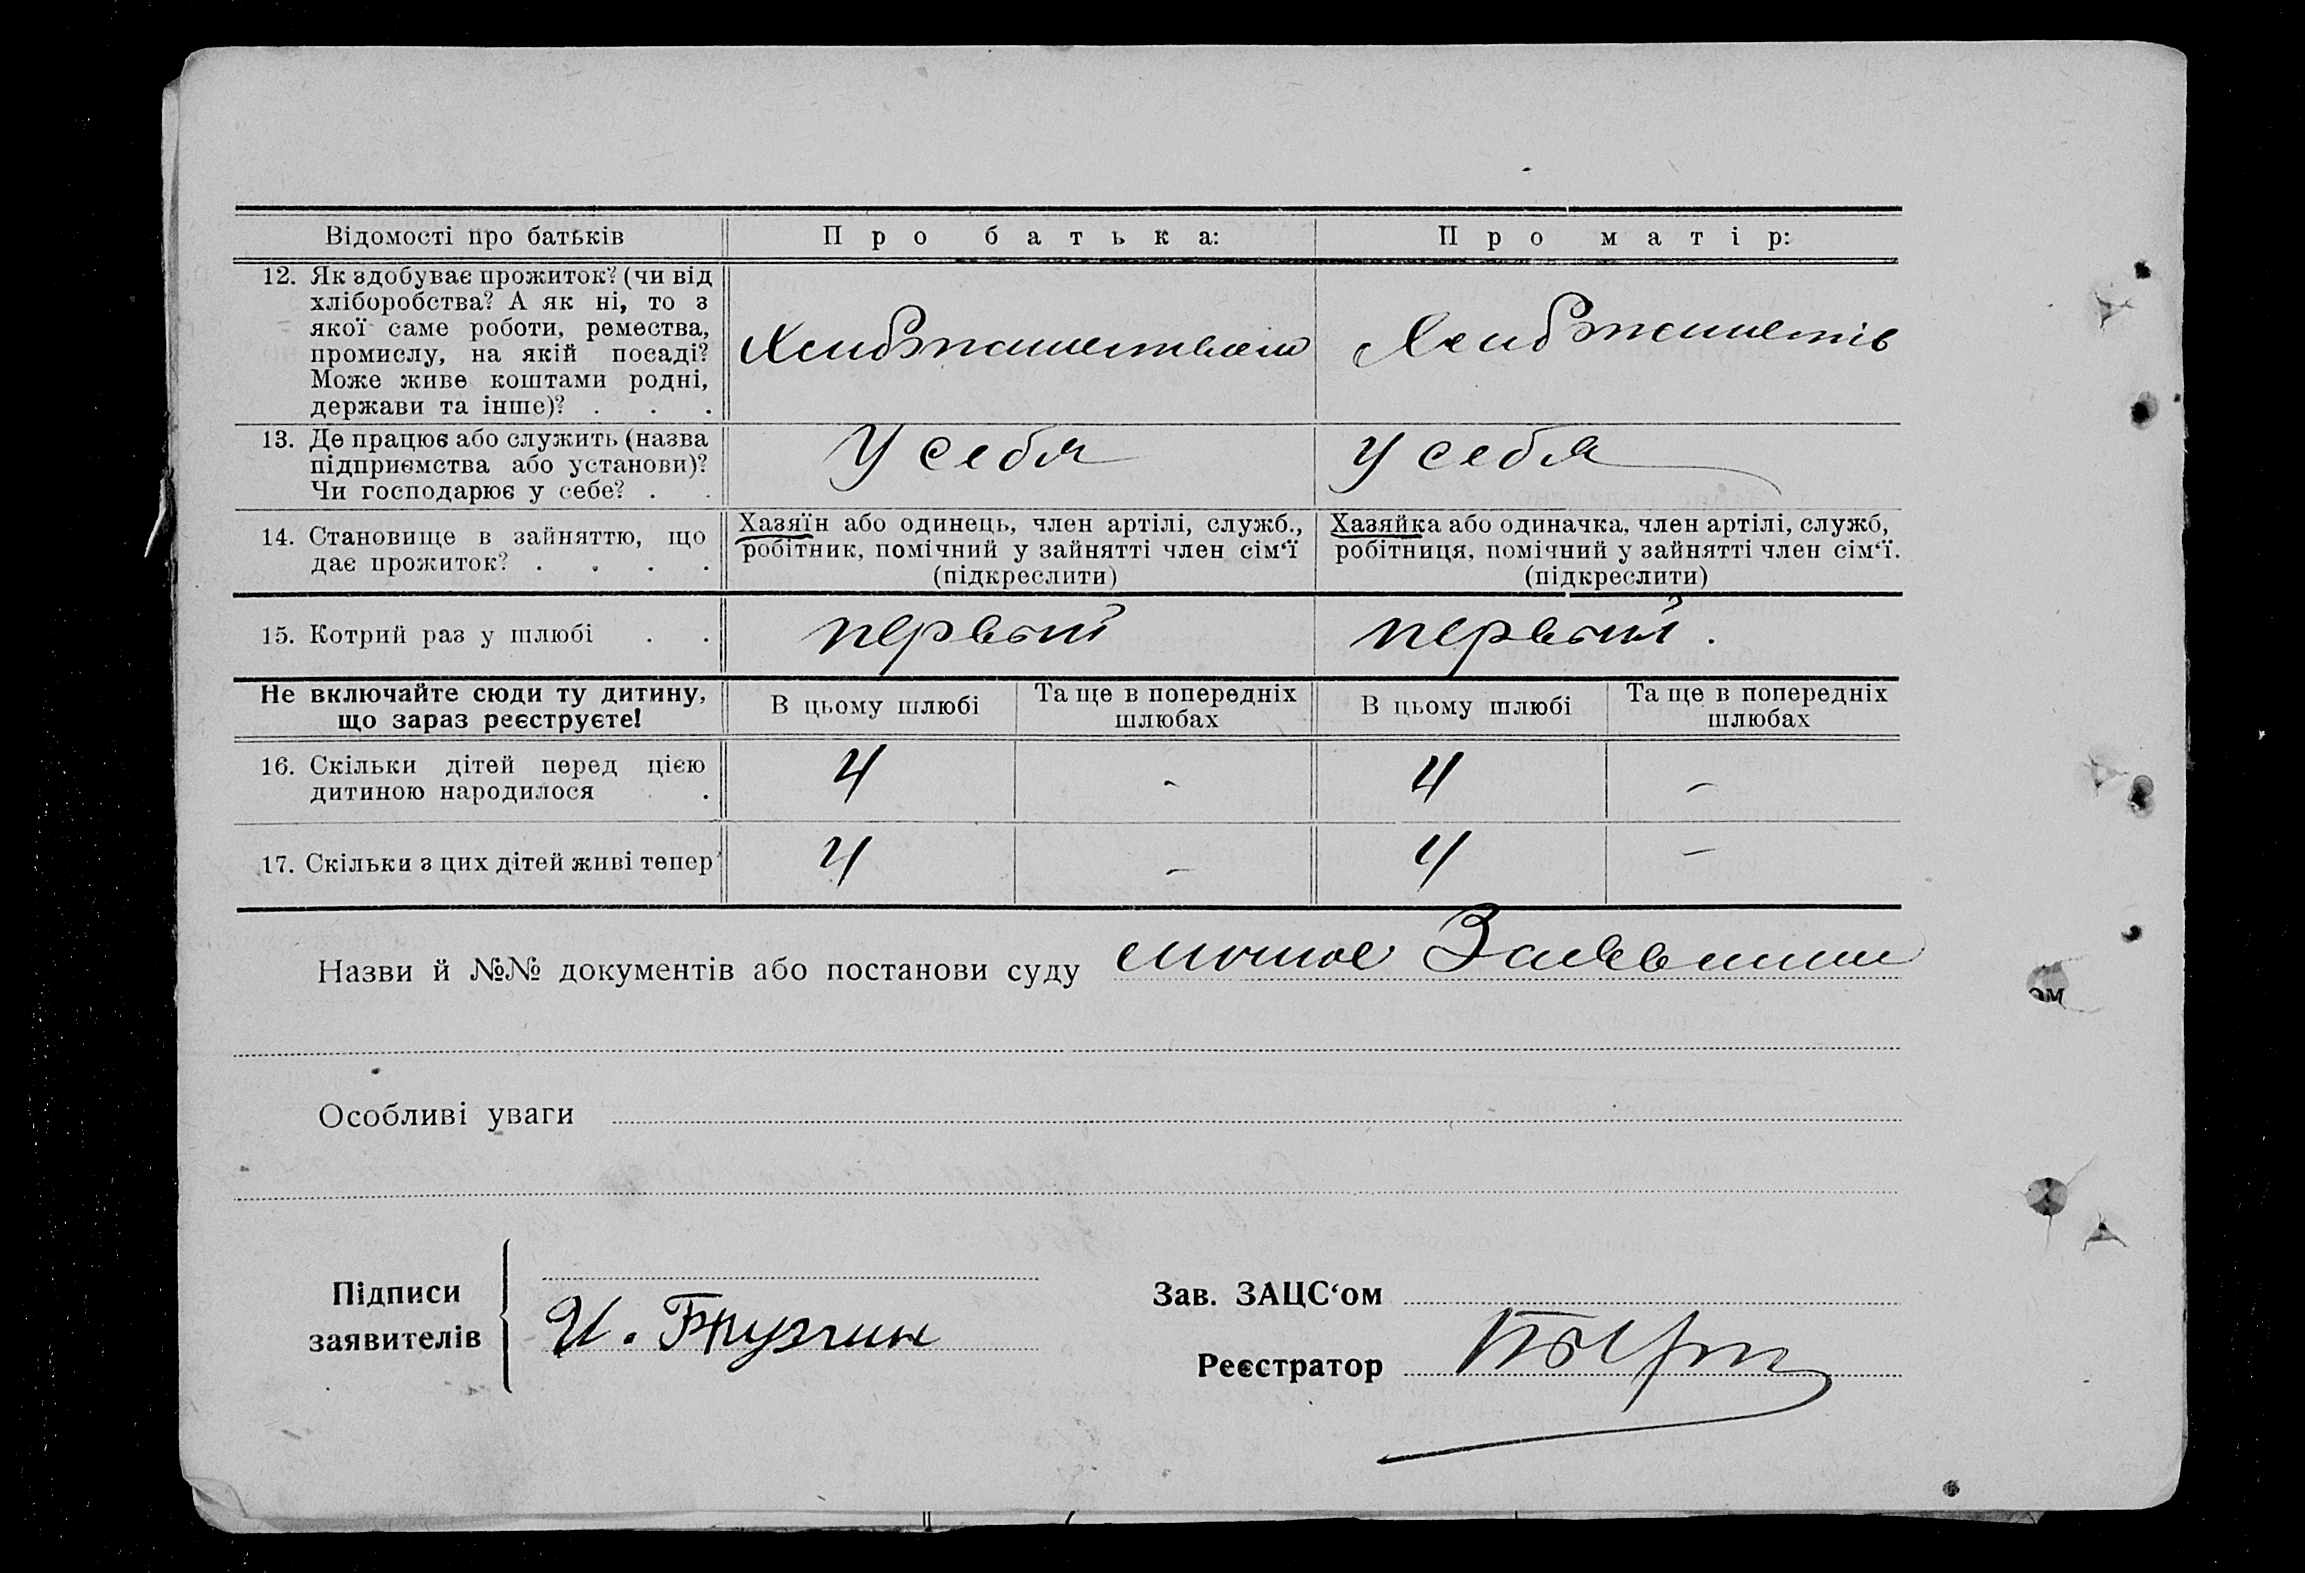 Відомості про батьків
Про батька:
Про матір:
12. Як здобуває прожиток? (чи від
хліборобства? А як ні, то з
якої саме роботи, ремества,
промислу, на якій посаді?
Може живе коштами родні,
держави та інше)? . . .
13. Де працює або служить (назва
підприємства або установи)?
Чи господарює у себе? . .
У себя
у себя
14. Становище в зайняттю, що
дає прожиток? . . . .
Хазяїн або одинець, член артілі, служб.,
робітник, помічний у зайнятті член сім‘ї
(підкреслити)
Хазяйка або одиначка, член артілі, служб,
робітниця, помічний у зайнятті член сім‘ї.
(підкреслити)
15. Котрий раз у шлюбі . .
первый
первый.
Не включайте сюди ту дитину,
що зараз реєструєте!
В цьому шлюбі
Та ще в попередніх
шлюбах
В цьому шлюбі
Та ще в попередніх
шлюбах
16. Скільки дітей перед цією
дитиною народилося .
4 - 4 -
17. Скільки з цих дітей живі тепер
4 - 4 -
Назви й №№ документів або постанови суду
Особливі уваги
Підписи
заявителів
И.
Зав. ЗАЦС‘ом
Реєстратор
ом